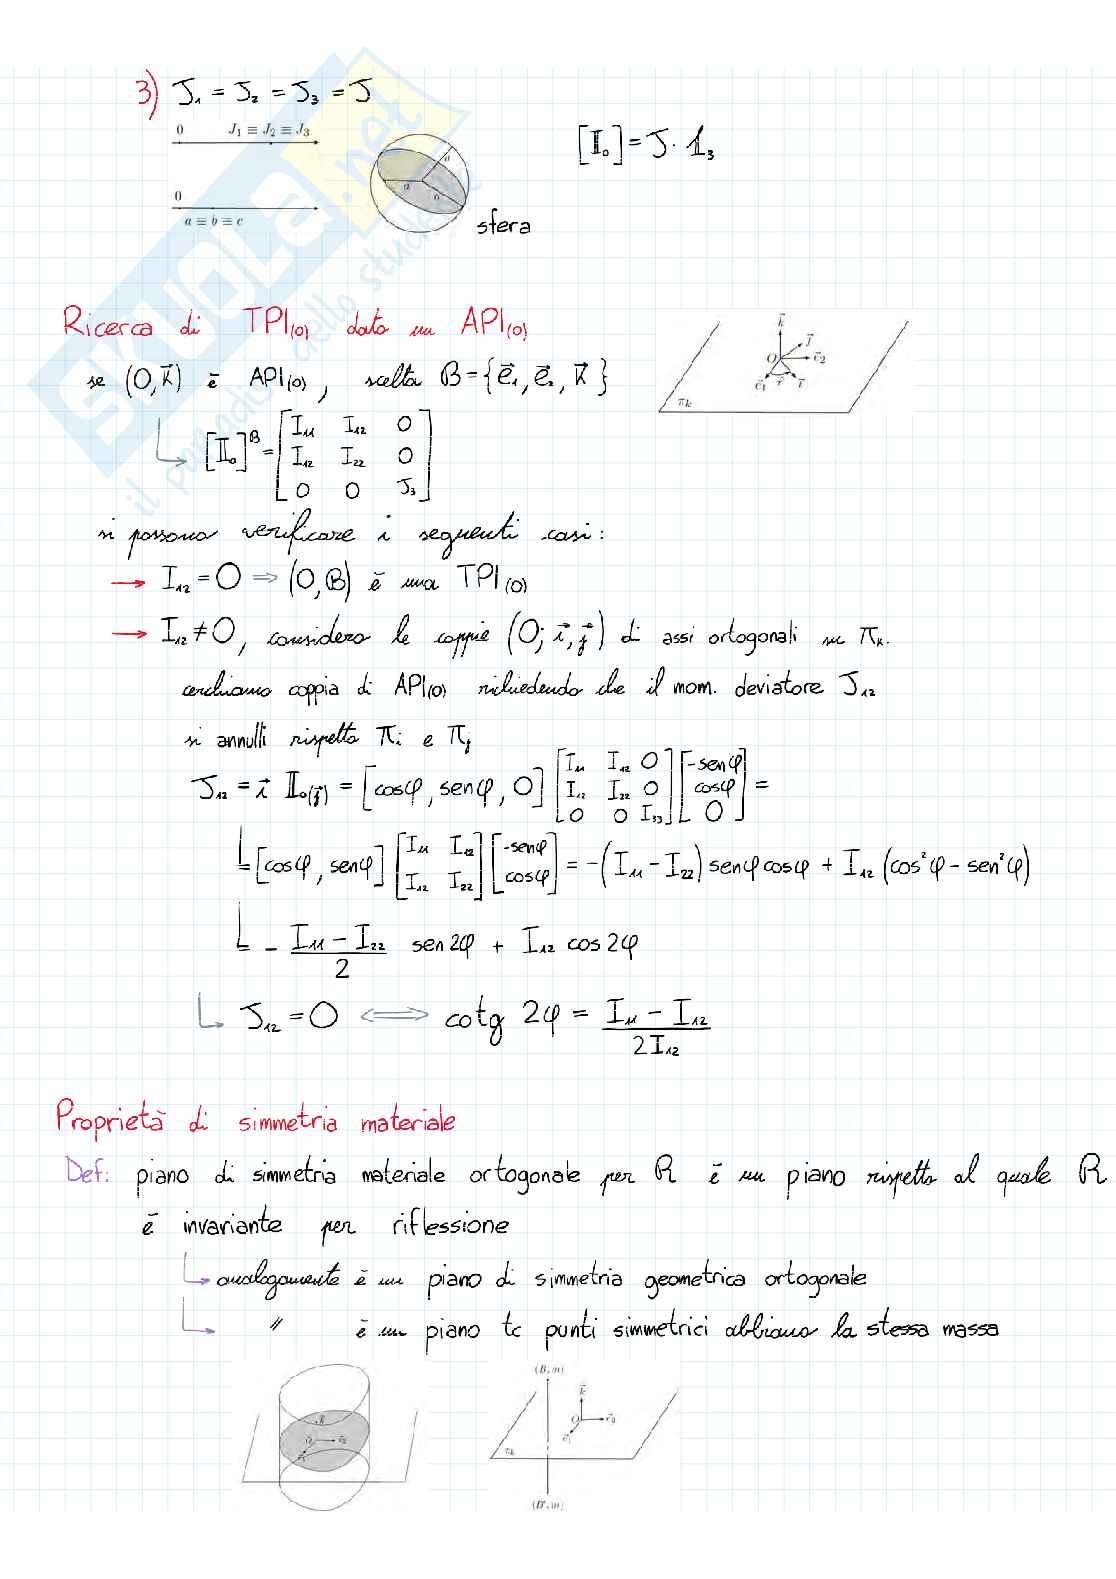 3) J₁ = J₂ = J₃ = J
0 J₁ ≡ J₂ ≡ J₃
[𝕀₀] = J · 𝟙₃
0
a ≡ b ≡ c
a a a
sfera
SKUOLA.net
il paradiso dello studente
Ricerca di TPI(0) dato un API(0)
se (O, k⃗) è API(0), scelta B = {e⃗₁, e⃗₂, k⃗}
k⃗ O j⃗ e⃗₂ e⃗₁ r⃗ π_k
[𝕀₀]ᴮ = [I₁₁ I₁₂ 0
I₁₂ I₂₂ 0
0 0 J₃]
si possono verificare i seguenti casi:
→ I₁₂ = 0 ⇒ (O, B) è una TPI(0)
→ I₁₂ ≠ 0, considero le coppie (O; i⃗, j⃗) di assi ortogonali su π_k.
cerchiamo coppia di API(0) richiedendo che il mom. deviatore J₁₂
si annulli rispetto π_i e π_j
J₁₂ = i⃗ 𝕀₀(j⃗) = [cosφ, senφ, 0] [I₁₁ I₁₂ 0; I₁₂ I₂₂ 0; 0 0 I₃₃] [-senφ; cosφ; 0] =
= [cosφ, senφ] [I₁₁ I₁₂; I₁₂ I₂₂] [-senφ; cosφ] = -(I₁₁ - I₂₂) senφ cosφ + I₁₂ (cos²φ - sen²φ)
= - (I₁₁ - I₂₂)/2 sen2φ + I₁₂ cos2φ
↳ J₁₂ = 0 ⟺ cotg 2φ = (I₁₁ - I₁₂)/(2I₁₂)
Proprietà di simmetria materiale
Def: piano di simmetria materiale ortogonale per R è un piano rispetto al quale R
è invariante per riflessione
↳ analogamente è un piano di simmetria geometrica ortogonale
↳ " è un piano tc punti simmetrici abbiano la stessa massa
(B, m)
k⃗ O e⃗₂ e⃗₁ π_k
(B', m)